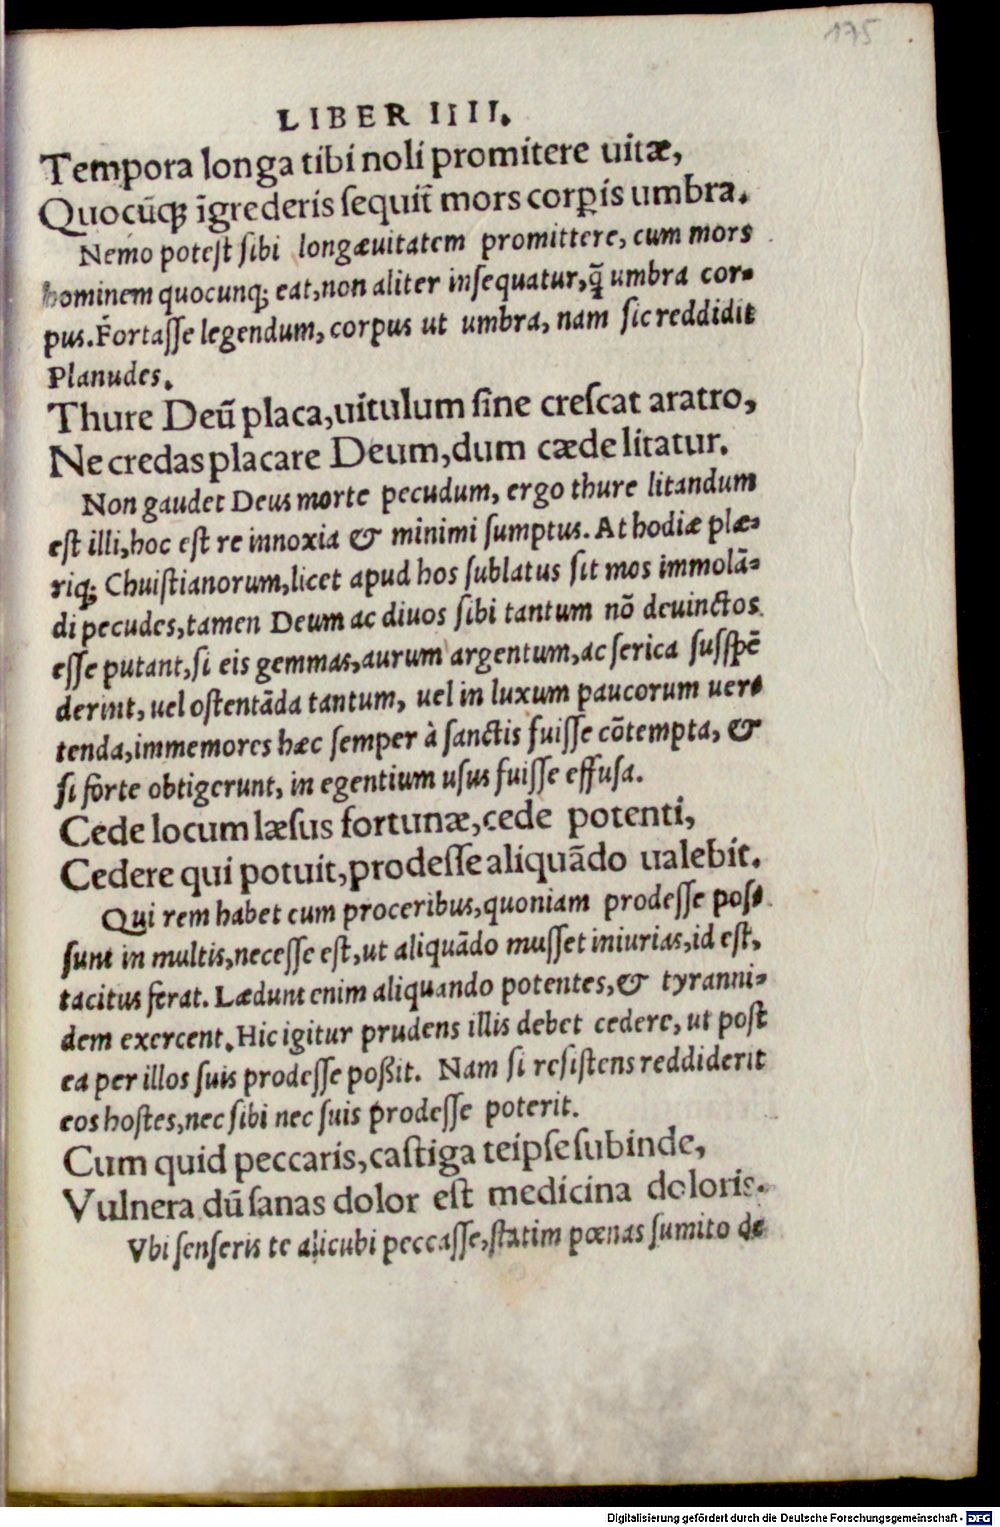 175
LIBER IIII.
Tempora longa tibi noli promitere uitæ,
Quocūqꝫ īgrederis ſequit᷑ mors corꝑis umbra.
Nemo poteſt ſibi longæuitatem promittere, cum mors
hominem quocunqꝫ eat, non aliter inſequatur, q̄ umbra cor-
pus. Fortaſſe legendum, corpus ut umbra, nam ſic reddidit
Planudes.
Thure Deū placa, uitulum ſine creſcat aratro,
Ne credas placare Deum, dum cæde litatur.
Non gaudet Deus morte pecudum, ergo thure litandum
eſt illi, hoc eſt re innoxia & minimi ſumptus. At hodiæ plæ-
riqꝫ Chuiſtianorum, licet apud hos ſublatus ſit mos immolā-
di pecudes, tamen Deum ac diuos ſibi tantum nō deuinctos
eſſe putant, ſi eis gemmas, aurum argentum, ac ſerica ſuſpē
derint, uel oſtentāda tantum, uel in luxum paucorum uer-
tenda, immemores hæc ſemper à ſanctis fuiſſe cōtempta, &
ſi forte obtigerunt, in egentium uſus fuiſſe effuſa.
Cede locum læſus fortunæ, cede potenti,
Cedere qui potuit, prodeſſe aliquādo ualebit.
Qui rem habet cum proceribus, quoniam prodeſſe poſ-
ſunt in multis, neceſſe eſt, ut aliquādo muſſet iniurias, id eſt,
tacitus ferat. Lædunt enim aliquando potentes, & tyranni-
dem exercent. Hic igitur prudens illis debet cedere, ut poſt
ea per illos ſuis prodeſſe poßit. Nam ſi reſiſtens reddiderit
eos hoſtes, nec ſibi nec ſuis prodeſſe poterit.
Cum quid peccaris, caſtiga teipſe ſubinde,
Vulnera dū ſanas dolor eſt medicina doloris.
Vbi ſenſeris te alicubi peccaſſe, ſtatim pœnas ſumito de
Digitalisierung gefördert durch die Deutsche Forschungsgemeinschaft - DFG